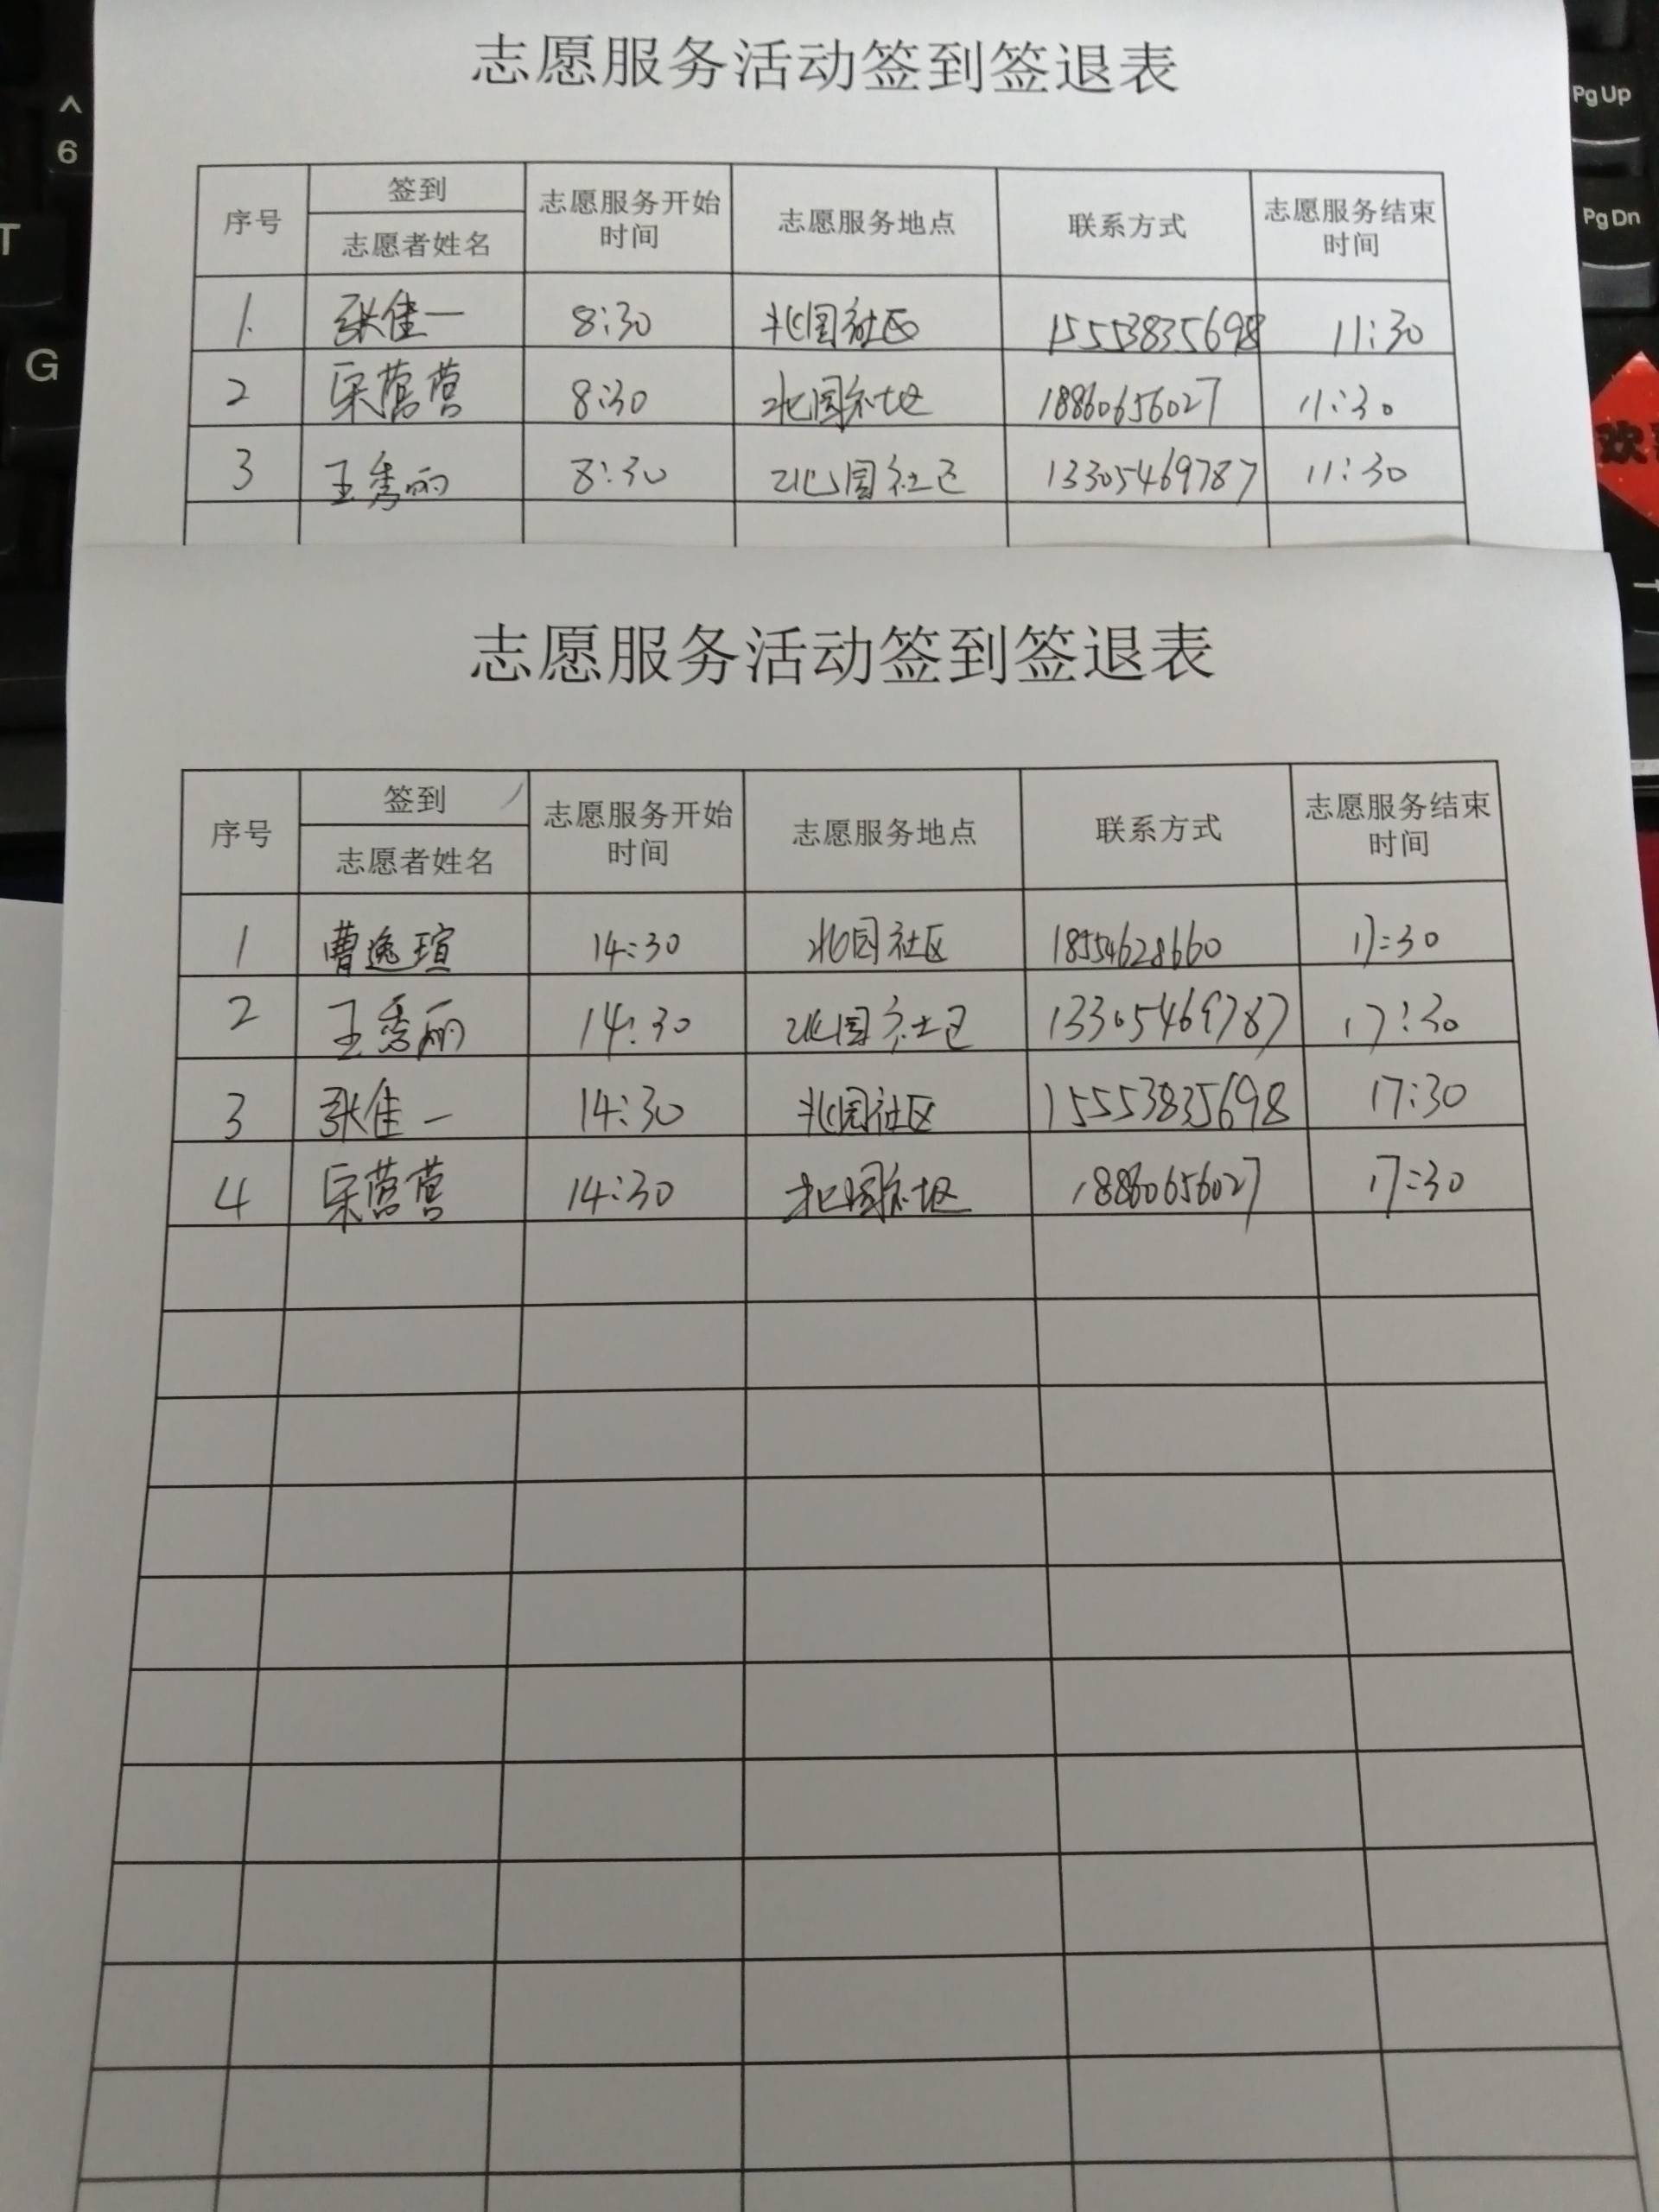 志愿服务活动签到签退表
序号 签到 志愿者姓名 志愿服务开始时间 志愿服务地点 联系方式 志愿服务结束时间
1. 张佳一 8:30 北园社区 15553835698 11:30
2 宋营营 8:30 北园社区 18860656027 11:30
3 王秀丽 8:30 北园社区 13305469787 11:30
志愿服务活动签到签退表
序号 签到 志愿者姓名 志愿服务开始时间 志愿服务地点 联系方式 志愿服务结束时间
1 曹逸瑄 14:30 北园社区 18554628660 17:30
2 王秀丽 14:30 北园社区 13305469787 17:30
3 张佳一 14:30 北园社区 15553835698 17:30
4 宋营营 14:30 北园社区 18860656027 17:30
^
6
T
G
Pg Up
Pg Dn
欢